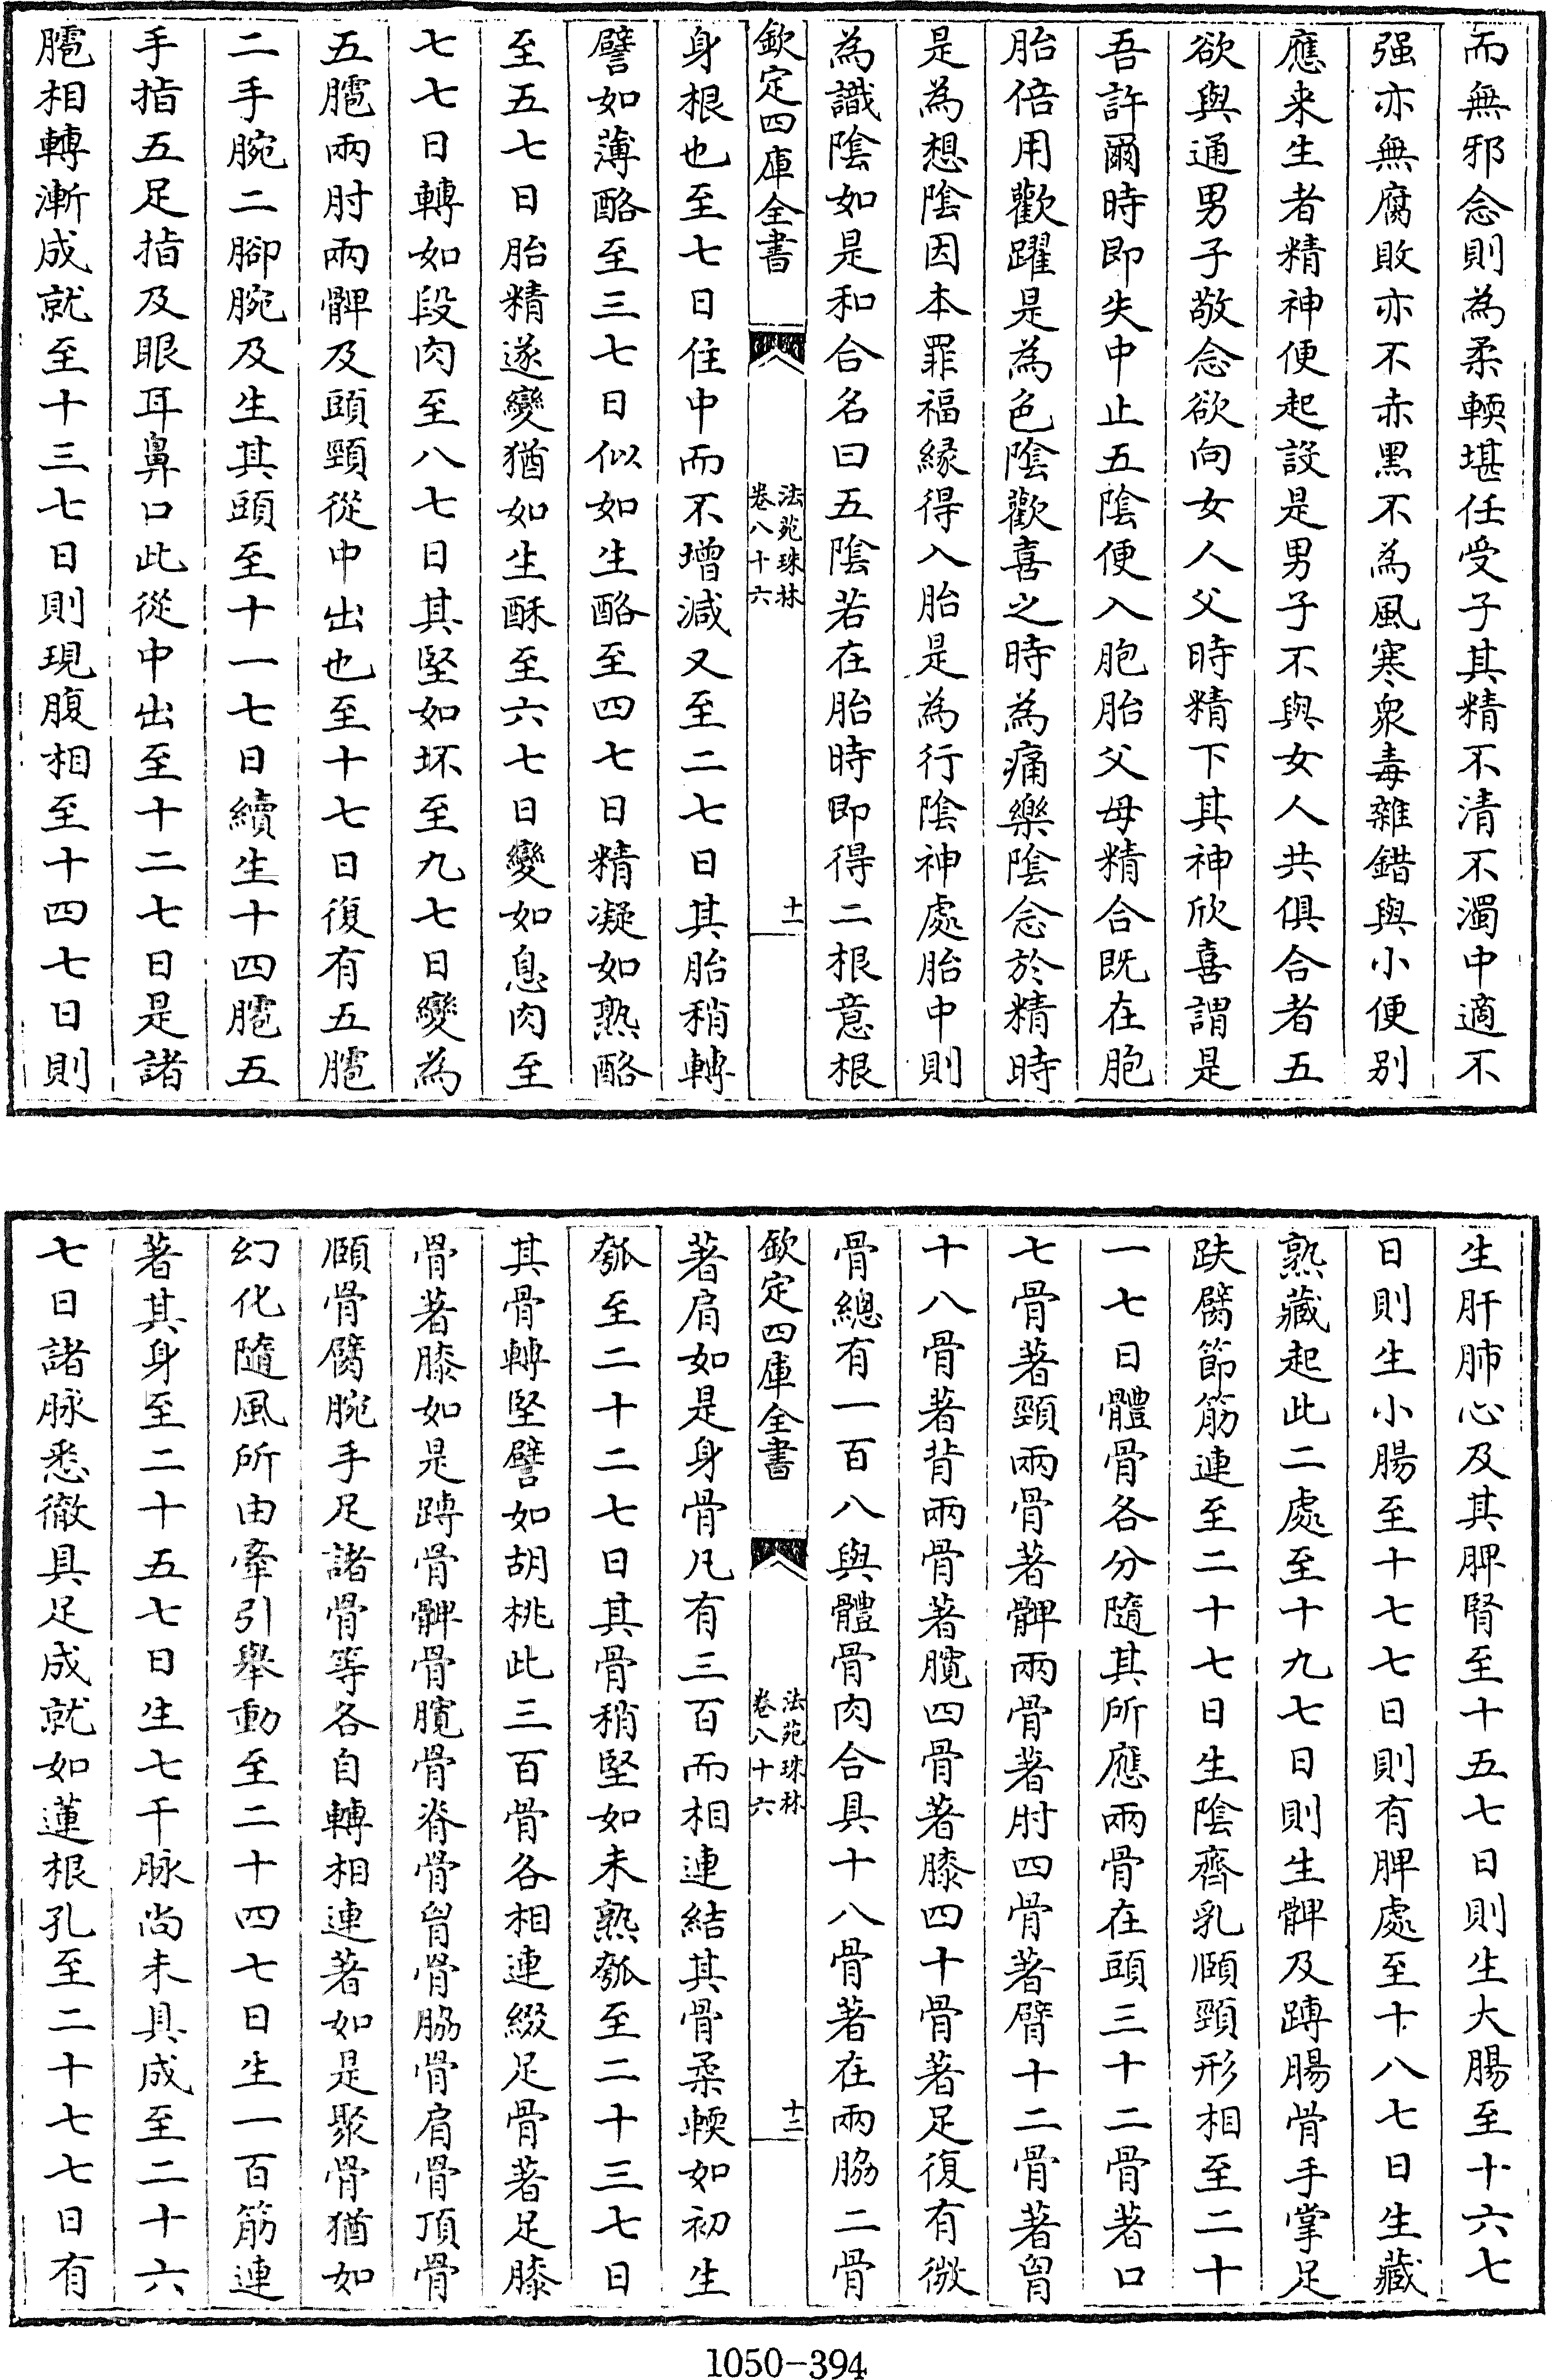 而無邪念則為柔輭堪任受子其精不清不濁中適不
强亦無腐敗亦不赤黑不為風寒衆毒雜錯與小便别
應来生者精神便起設是男子不與女人共俱合者五
欲與通男子敬念欲向女人父時精下其神欣喜謂是
吾許爾時即失中止五陰便入胞胎父母精合既在胞
胎倍用歡躍是為色陰歡喜之時為痛樂陰念於精時
是為想陰因本罪福緣得入胎是為行陰神處胎中則
為識陰如是和合名曰五陰若在胎時即得二根意根
欽定四庫全書
法苑珠林
卷八十六
十一
身根也至七日住中而不增減又至二七日其胎稍轉
譬如薄酪至三七日似如生酪至四七日精凝如熟酪
至五七日胎精遂變猶如生酥至六七日變如息肉至
七七日轉如段肉至八七日其堅如坏至九七日變為
五皰兩肘兩髀及頭頸從中出也至十七日復有五皰
二手腕二腳腕及生其頭至十一七日續生十四皰五
手指五足指及眼耳鼻口此從中出至十二七日是諸
皰相轉漸成就至十三七日則現腹相至十四七日則
生肝肺心及其脾腎至十五七日則生大腸至十六七
日則生小腸至十七七日則有脾處至十八七日生藏
熟藏起此二處至十九七日則生髀及踹腸骨手掌足
趺臂節筋連至二十七日生陰臍乳頤頸形相至二十
一七日體骨各分隨其所應兩骨在頭三十二骨著口
七骨著頸兩骨著髀兩骨著肘四骨著臂十二骨著胷
十八骨著背兩骨著臗四骨著膝四十骨著足復有微
骨總有一百八與體骨肉合具十八骨著在兩脇二骨
欽定四庫全書
法苑珠林
卷八十六
十二
著肩如是身骨凡有三百而相連結其骨柔輭如初生
瓠至二十二七日其骨稍堅如未熟瓠至二十三七日
其骨轉堅譬如胡桃此三百骨各相連綴足骨著足膝
骨著膝如是踹骨髀骨臗骨脊骨胷骨脇骨肩骨頂骨
頤骨臂腕手足諸骨等各自轉相連著如是聚骨猶如
幻化隨風所由牽引舉動至二十四七日生一百筋連
著其身至二十五七日生七千脉尚未具成至二十六
七日諸脉悉徹具足成就如蓮根孔至二十七七日有
1050-394